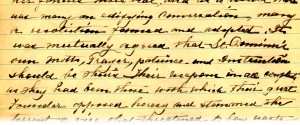 was many an edifying conversation, many
a resolution formed and adopted. It
was mutually agreed that St. Dominic's
own Motto, Prayer, patience, and Instruction
should be their weapons in all combats
as they had been those with which their great
Founder opposed heresy and stemmed the
torrent of vice that threatened to lay waste